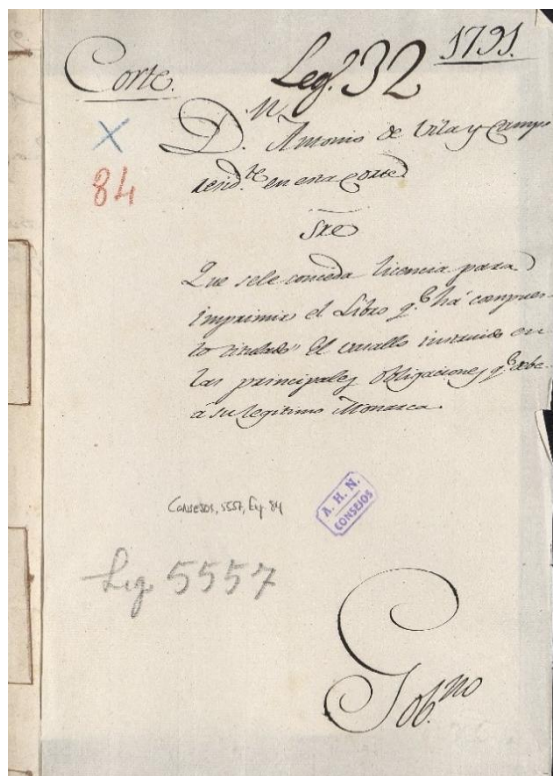 Corte.
Leg.º 32
1791.
84
D.n Antonio de Vila y Camps
resid.te en esta Corte
Sre
Que sele conceda licencia para
imprimir el Libro q.e há compues-
to titulado "El vasallo instruido en
las principales obligaciones q.e debe
a su legitimo Monarca.
Consejos, 5557, Exp. 84
A. H. N.
CONSEJOS
Leg 5557
Gob.no